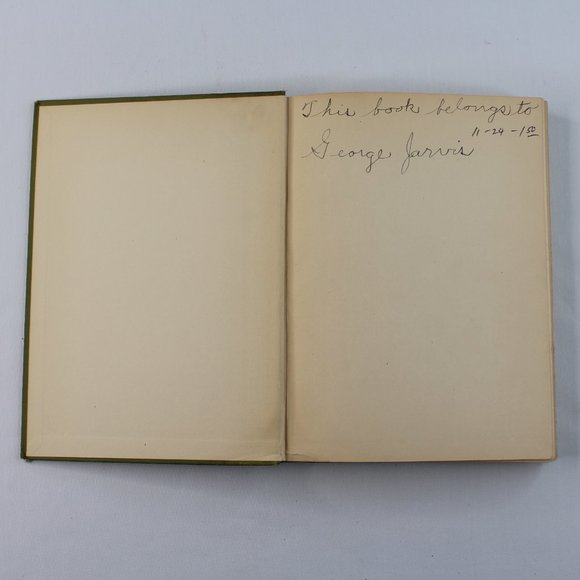 This book belongs to
11-24-1 50
George Jarvis